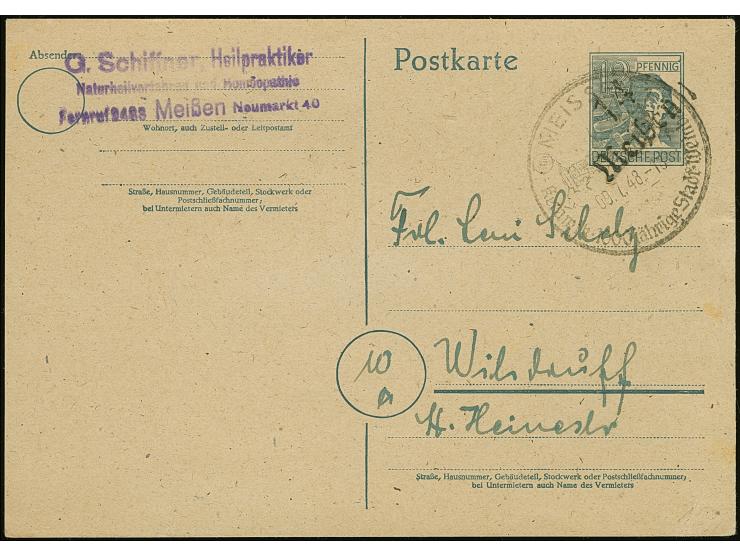 Absender:
G. Schiffner, Heilpraktiker
Naturheilverfahren und Homöopathie
Fernruf 2486 Meißen Neumarkt 40
Wohnort, auch Zustell- oder Leitpostamt
Straße, Hausnummer, Gebäudeteil, Stockwerk oder
Postschließfachnummer;
bei Untermietern auch Name des Vermieters
Postkarte
12 PFENNIG
DEUTSCHE POST
14
Meißen
MEISSEN
48.-15
1000jährige Stadt Meißen
Frl. Leni Scholz
10
a
Wilsdruff
H. Heinestr
Straße, Hausnummer, Gebäudeteil, Stockwerk oder Postschließfachnummer;
bei Untermietern auch Name des Vermieters